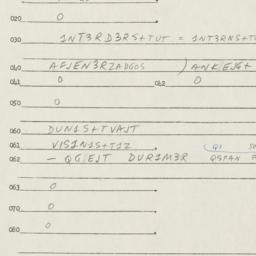 020 0
030 1NT3RD3RS+TUT = 1NT3RNS+T
040 AFJEN3RZADGOS ) ANKEJG+
041 0 042 0
050 0
060 DUN1S+TVAJT
061 VIS1N1S+T1Z Q1
062 - QGEJT DUR1M3R QSPAN
063 0
070 0
080 0